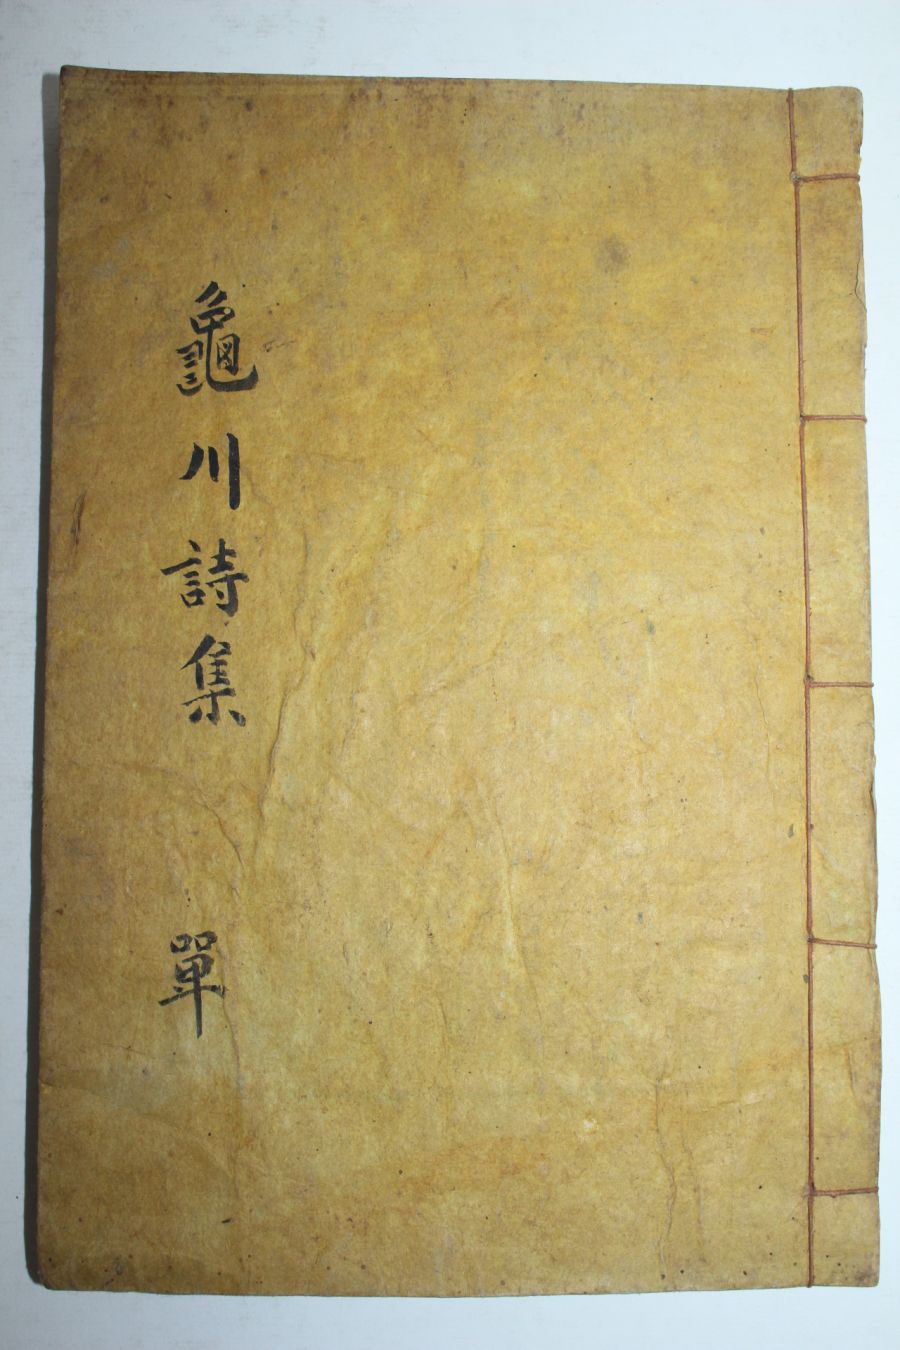 龜川詩集 單